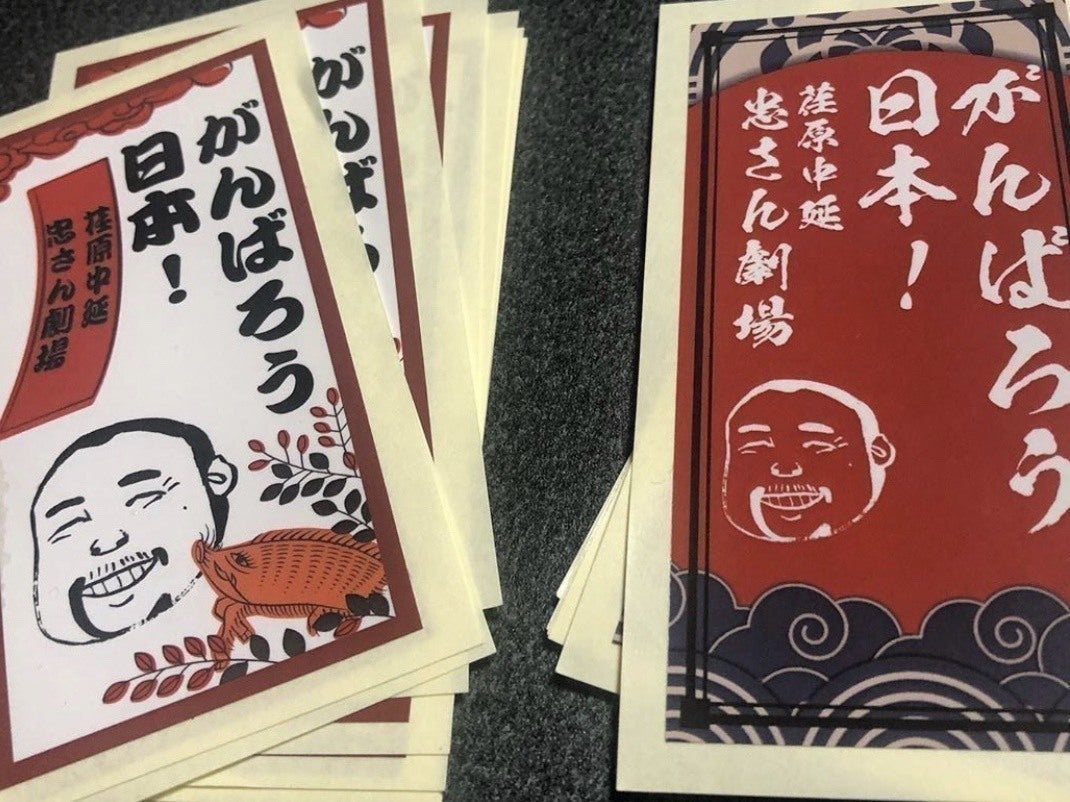 がんばろう
日本！
荏原中延
忠さん劇場
がんばろ
がんばろう
日本！
荏原中延
忠さん劇場